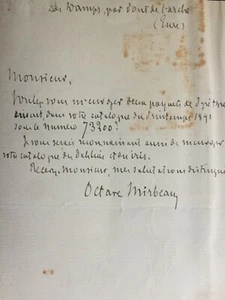 Les Damps, par Pont de l'arche
(Eure)
Monsieur,
Voulez-vous m'envoyer deux paquets de
suivant, dans votre catalogue du Printemps 1891
sous le numéro 73200?
Je vous serais reconnaissant aussi de m'envoyer
votre catalogue de Dahlias et d'iris.
Recevez, Monsieur, mes salutations distinguées
Octave Mirbeau